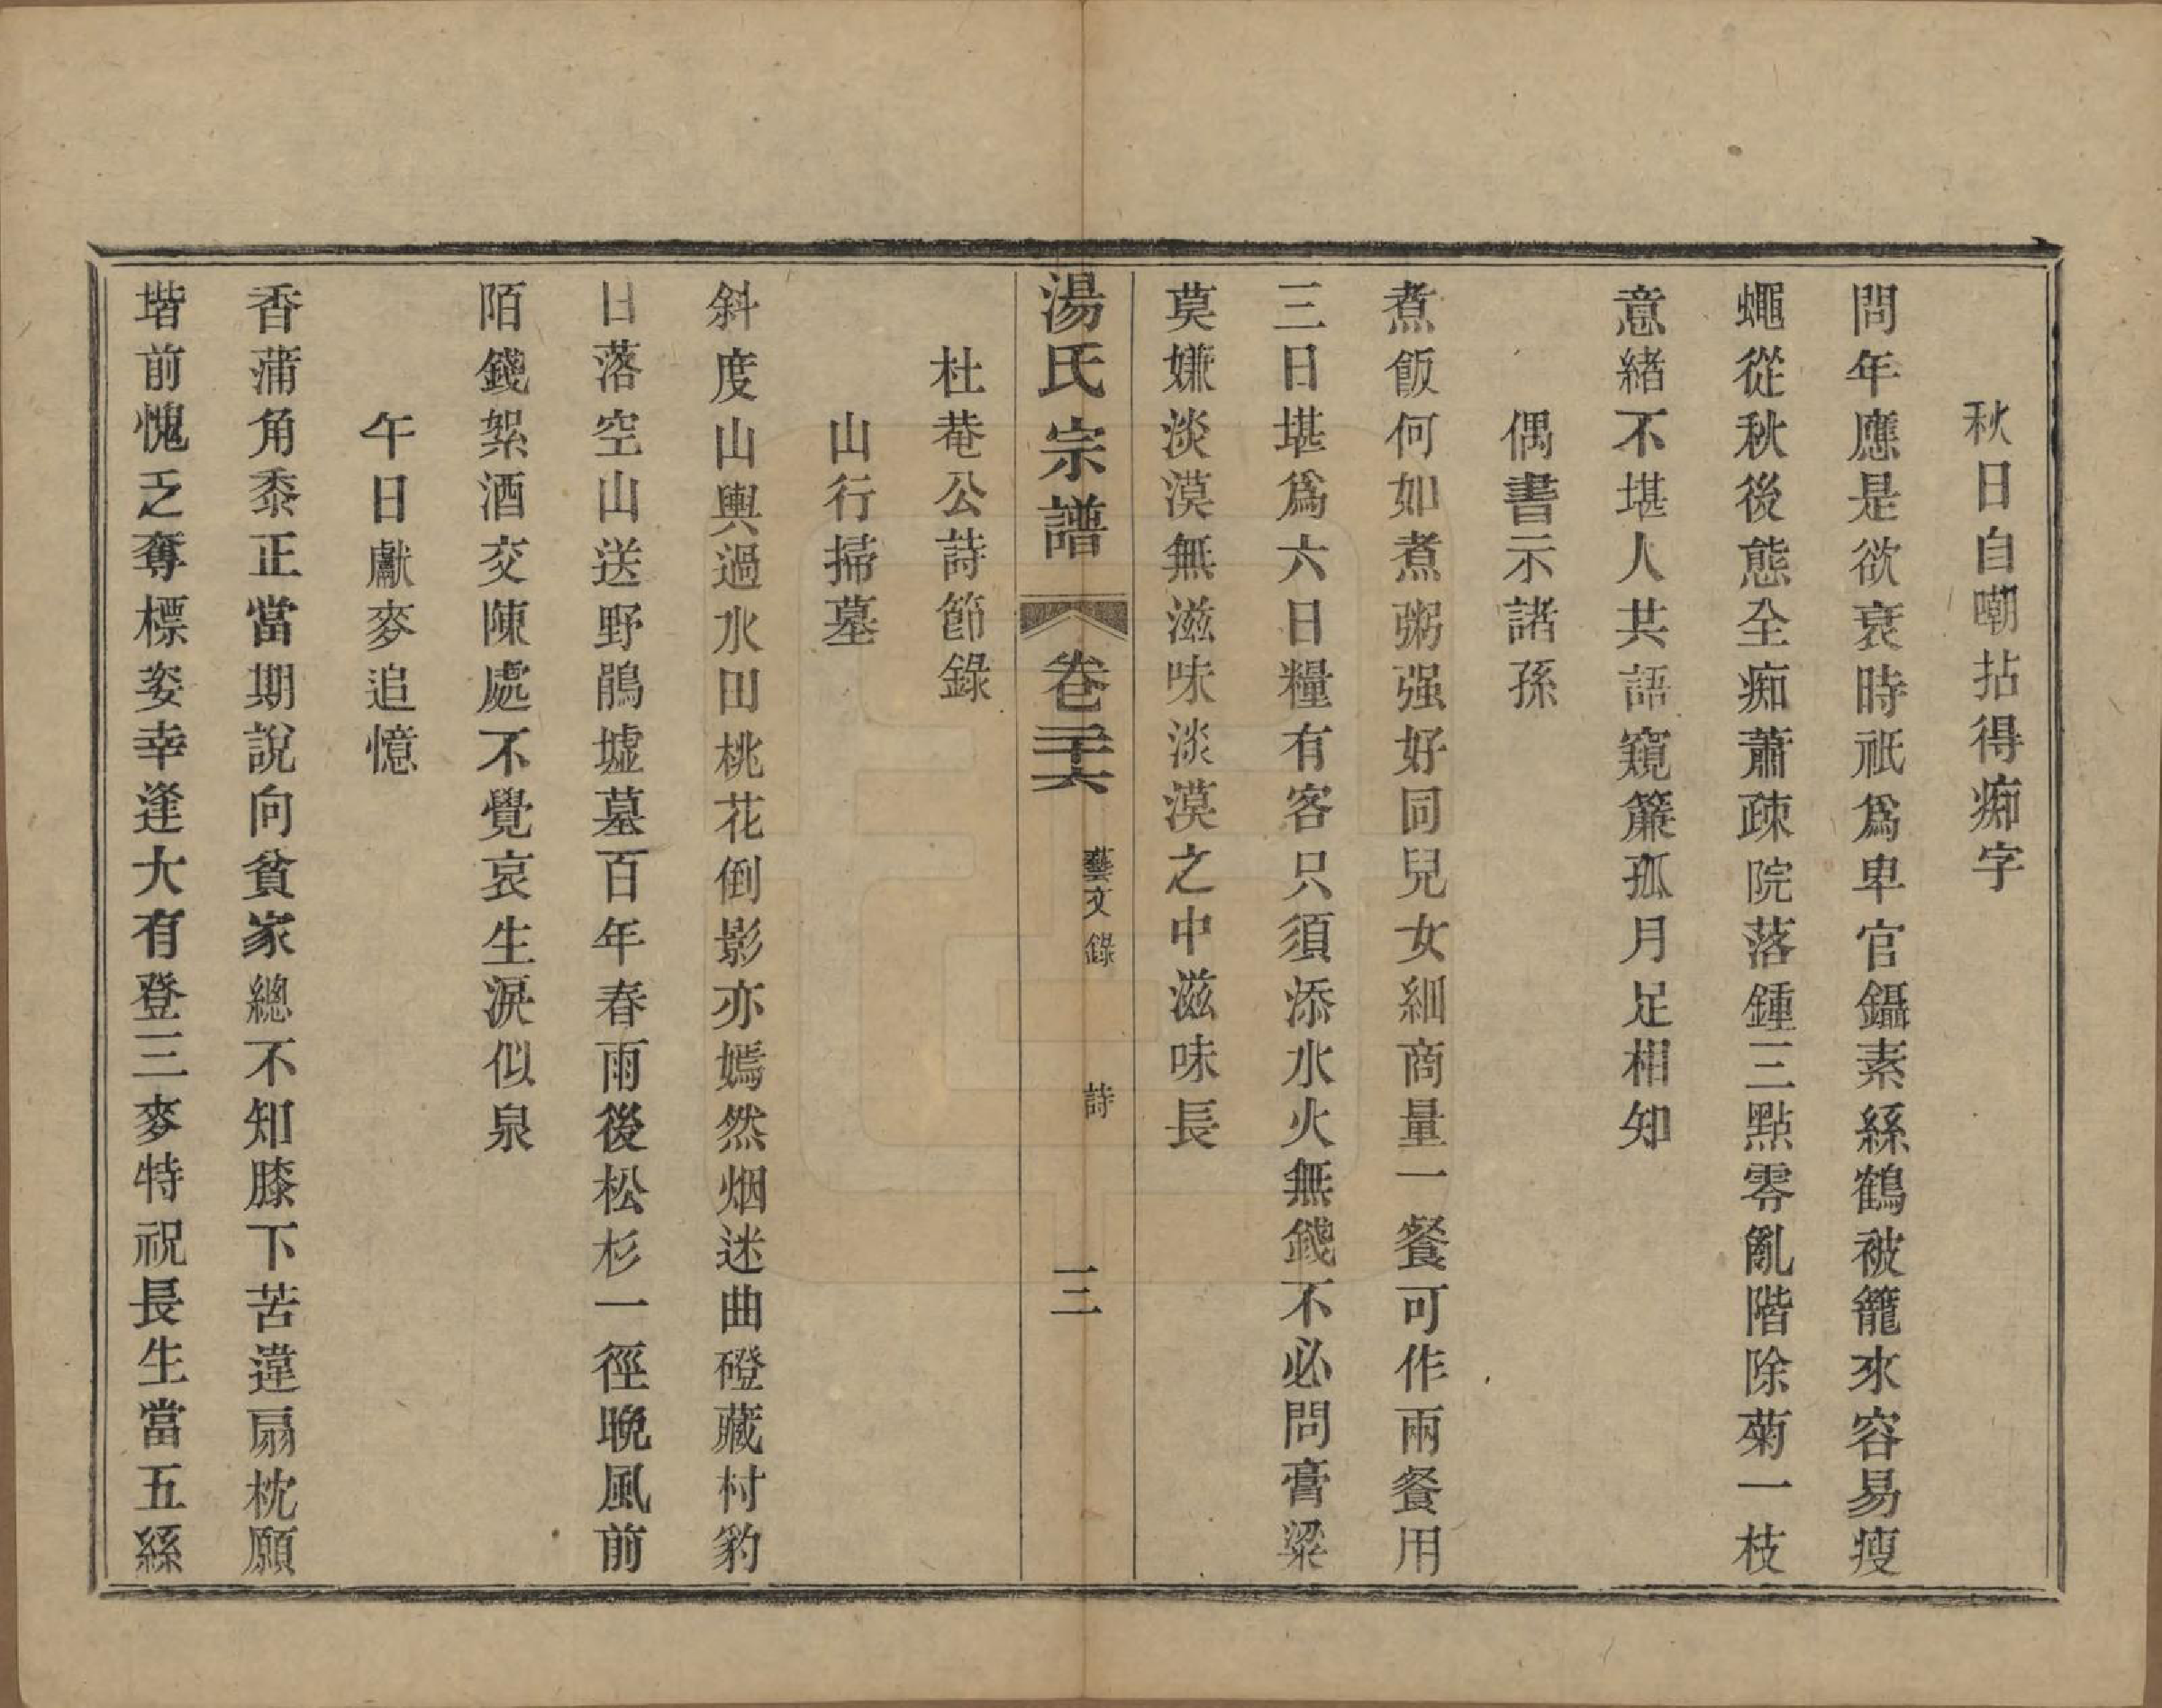 秋日自嘲拈得痴字
問年應是欲衰時祇爲卑官鑷素絲鶴被籠來容易瘦
蠅從秋後態全痴蕭疎院落鍾三點零亂階除菊一枝
意緒不堪人共語窺簾孤月足相知
偶書示諸孫
煮飯何如煮粥强好同兒女細商量一餐可作兩餐用
三日堪爲六日糧有客只須添水火無錢不必問膏粱
莫嫌淡漠無滋味淡漠之中滋味長
湯氏宗譜 卷二十六 藝文錄 詩 三
杜菴公詩節錄
山行掃墓
斜度山輿過水田桃花倒影亦嫣然烟迷曲磴藏村豹
日落空山送野鵑墟墓百年春雨後松杉一徑晚風前
陌錢絮酒交陳處不覺哀生淚似泉
午日獻麥追憶
香蒲角黍正當期說向貧家總不知膝下苦違扇枕願
堦前愧乏奪標姿幸逢大有登三麥特祝長生當五絲